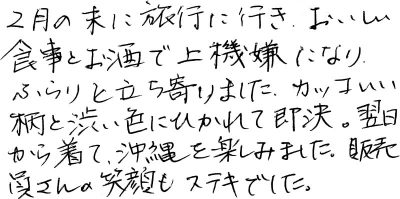 2月の末に旅行に行き、おいしい
食事とお酒で上機嫌になり、
ふらりと立ち寄りました、カッコいい
柄と渋い色にひかれて即決。翌日
から着て、沖縄を楽しみました。販売
員さんの笑顔もステキでした。